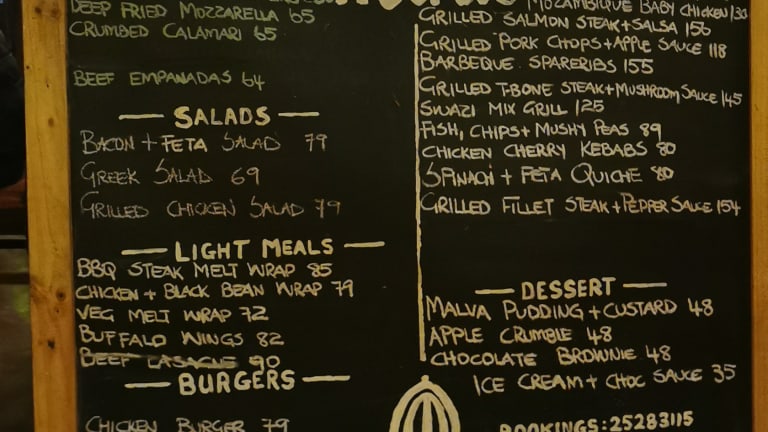 DEEP FRIED MOZZARELLA 65
CRUMBED CALAMARI 65
BEEF EMPANADAS 64
SALADS
BACON + FETA SALAD 79
GREEK SALAD 69
GRILLED CHICKEN SALAD 79
LIGHT MEALS
BBQ STEAK MELT WRAP 85
CHICKEN + BLACK BEAN WRAP 79
VEG MELT WRAP 72
BUFFALO WINGS 82
BEEF LASAGNE 90
BURGERS
CHICKEN BURGER 79
MOZAMBIQUE BABY CHICKEN
GRILLED SALMON STEAK + SALSA 156
GRILLED PORK CHOPS + APPLE SAUCE 118
BARBEQUE SPARERIBS 155
GRILLED T-BONE STEAK + MUSHROOM SAUCE 145
SWAZI MIX GRILL 125
FISH, CHIPS + MUSHY PEAS 89
CHICKEN CHERRY KEBABS 80
SPINACH + FETA QUICHE 80
GRILLED FILLET STEAK + PEPPER SAUCE 154
DESSERT
MALVA PUDDING + CUSTARD 48
APPLE CRUMBLE 48
CHOCOLATE BROWNIE 48
ICE CREAM + CHOC SAUCE 35
BOOKINGS: 25283115